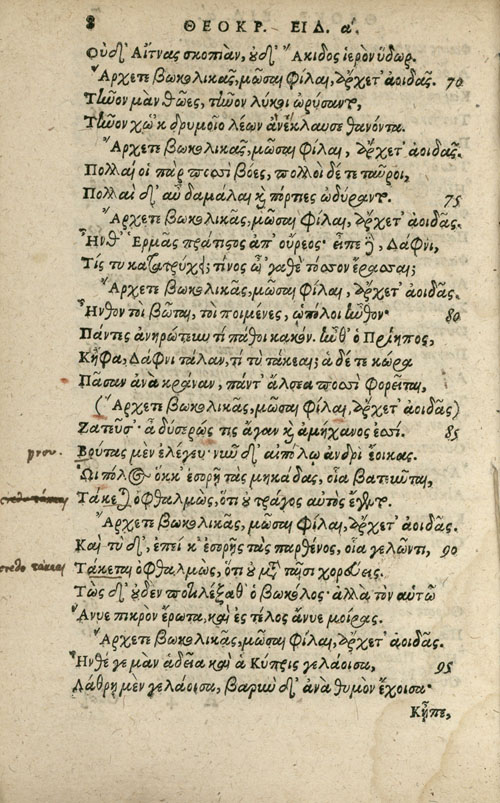 8 ΘΕΟΚΡ. ΕΙΔ. α΄.
Οὐδ' Αἴτνας σκοπιὰν, οὐδ' Ἄκιδος ἱερὸν ὕδωρ.
Ἄρχετε βωκολικᾶς, μῶσαι φίλαι, ἄρχετ' ἀοιδᾶς. 70
Τῆνον μὰν θῶες, τῆνον λύκοι ὠρύσαντο,
Τῆνον χὡ 'κ δρυμοῖο λέων ἀνέκλαυσε θανόντα.
Ἄρχετε βωκολικᾶς, μῶσαι φίλαι, ἄρχετ' ἀοιδᾶς.
Πολλαί οἱ πὰρ ποσσὶ βόες, πολλοὶ δέ τε ταῦροι,
Πολλαὶ δ' αὖ δαμάλαι καὶ πόρτιες ὠδύραντο. 75
Ἄρχετε βωκολικᾶς, μῶσαι φίλαι, ἄρχετ' ἀοιδᾶς.
Ἦνθ' Ἑρμᾶς πράτιστος ἀπ' ὤρεος· εἶπε δὲ, Δάφνι,
Τίς τυ κατατρύχει; τίνος ὦ 'γαθὲ τόσσον ἔρασσαι;
Ἄρχετε βωκολικᾶς, μῶσαι φίλαι, ἄρχετ' ἀοιδᾶς.
Ἦνθον τοὶ βῶται, τοὶ ποιμένες, ᾡπόλοι ἦνθον· 80
Πάντες ἀνηρώτευν τί πάθοι κακόν. ἦνθ' ὁ Πρίηπος,
Κἤφα, Δάφνι τάλαν, τί τὺ τάκεαι; ἁ δέ τε κώρα
Πᾶσαν ἀνὰ κράναν, πάντ' ἄλσεα ποσσὶ φορεῖται,
(Ἄρχετε βωκολικᾶς, μῶσαι φίλαι, ἄρχετ' ἀοιδᾶς)
Ζατεῦσ'· ἆ δύσερώς τις ἄγαν καὶ ἀμήχανος ἐσσί. 85
Βούτας μὲν ἐλέγευ· νῦν δ' αἰπόλῳ ἀνδρὶ ἔοικας.
Ὡιπόλος ὅκκ' ἐσορῇ τὰς μηκάδας, οἷα βατεῦνται,
Τάκεται ὀφθαλμὼς, ὅτι οὐ τράγος αὐτὸς ἔγεντο.
Ἄρχετε βωκολικᾶς, μῶσαι φίλαι, ἄρχετ' ἀοιδᾶς.
Καὶ τὺ δ', ἐπεί κ' ἐσορῇς τὰς παρθένος, οἷα γελῶντι, 90
Τάκεαι ὀφθαλμὼς, ὅτι οὐ μετὰ ταῖσι χορεύεις.
Τὼς δ' οὐδὲν ποτελέξαθ' ὁ βωκόλος· ἀλλὰ τὸν αὑτῶ
Ἄνυε πικρὸν ἔρωτα, καὶ ἐς τέλος ἄνυε μοίρας.
Ἄρχετε βωκολικᾶς, μῶσαι φίλαι, ἄρχετ' ἀοιδᾶς.
Ἦνθέ γε μὰν ἁδεῖα καὶ ἁ Κύπρις γελάοισα, 95
Λάθρη μὲν γελάοισα, βαρὺν δ' ἀνὰ θυμὸν ἔχοισα·
Κἦπε,